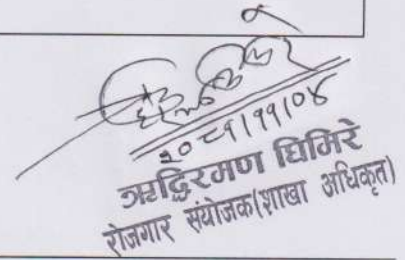 २०८१।११।०४
ऋद्धिरमण घिमिरे
रोजगार संयोजक(शाखा अधिकृत)